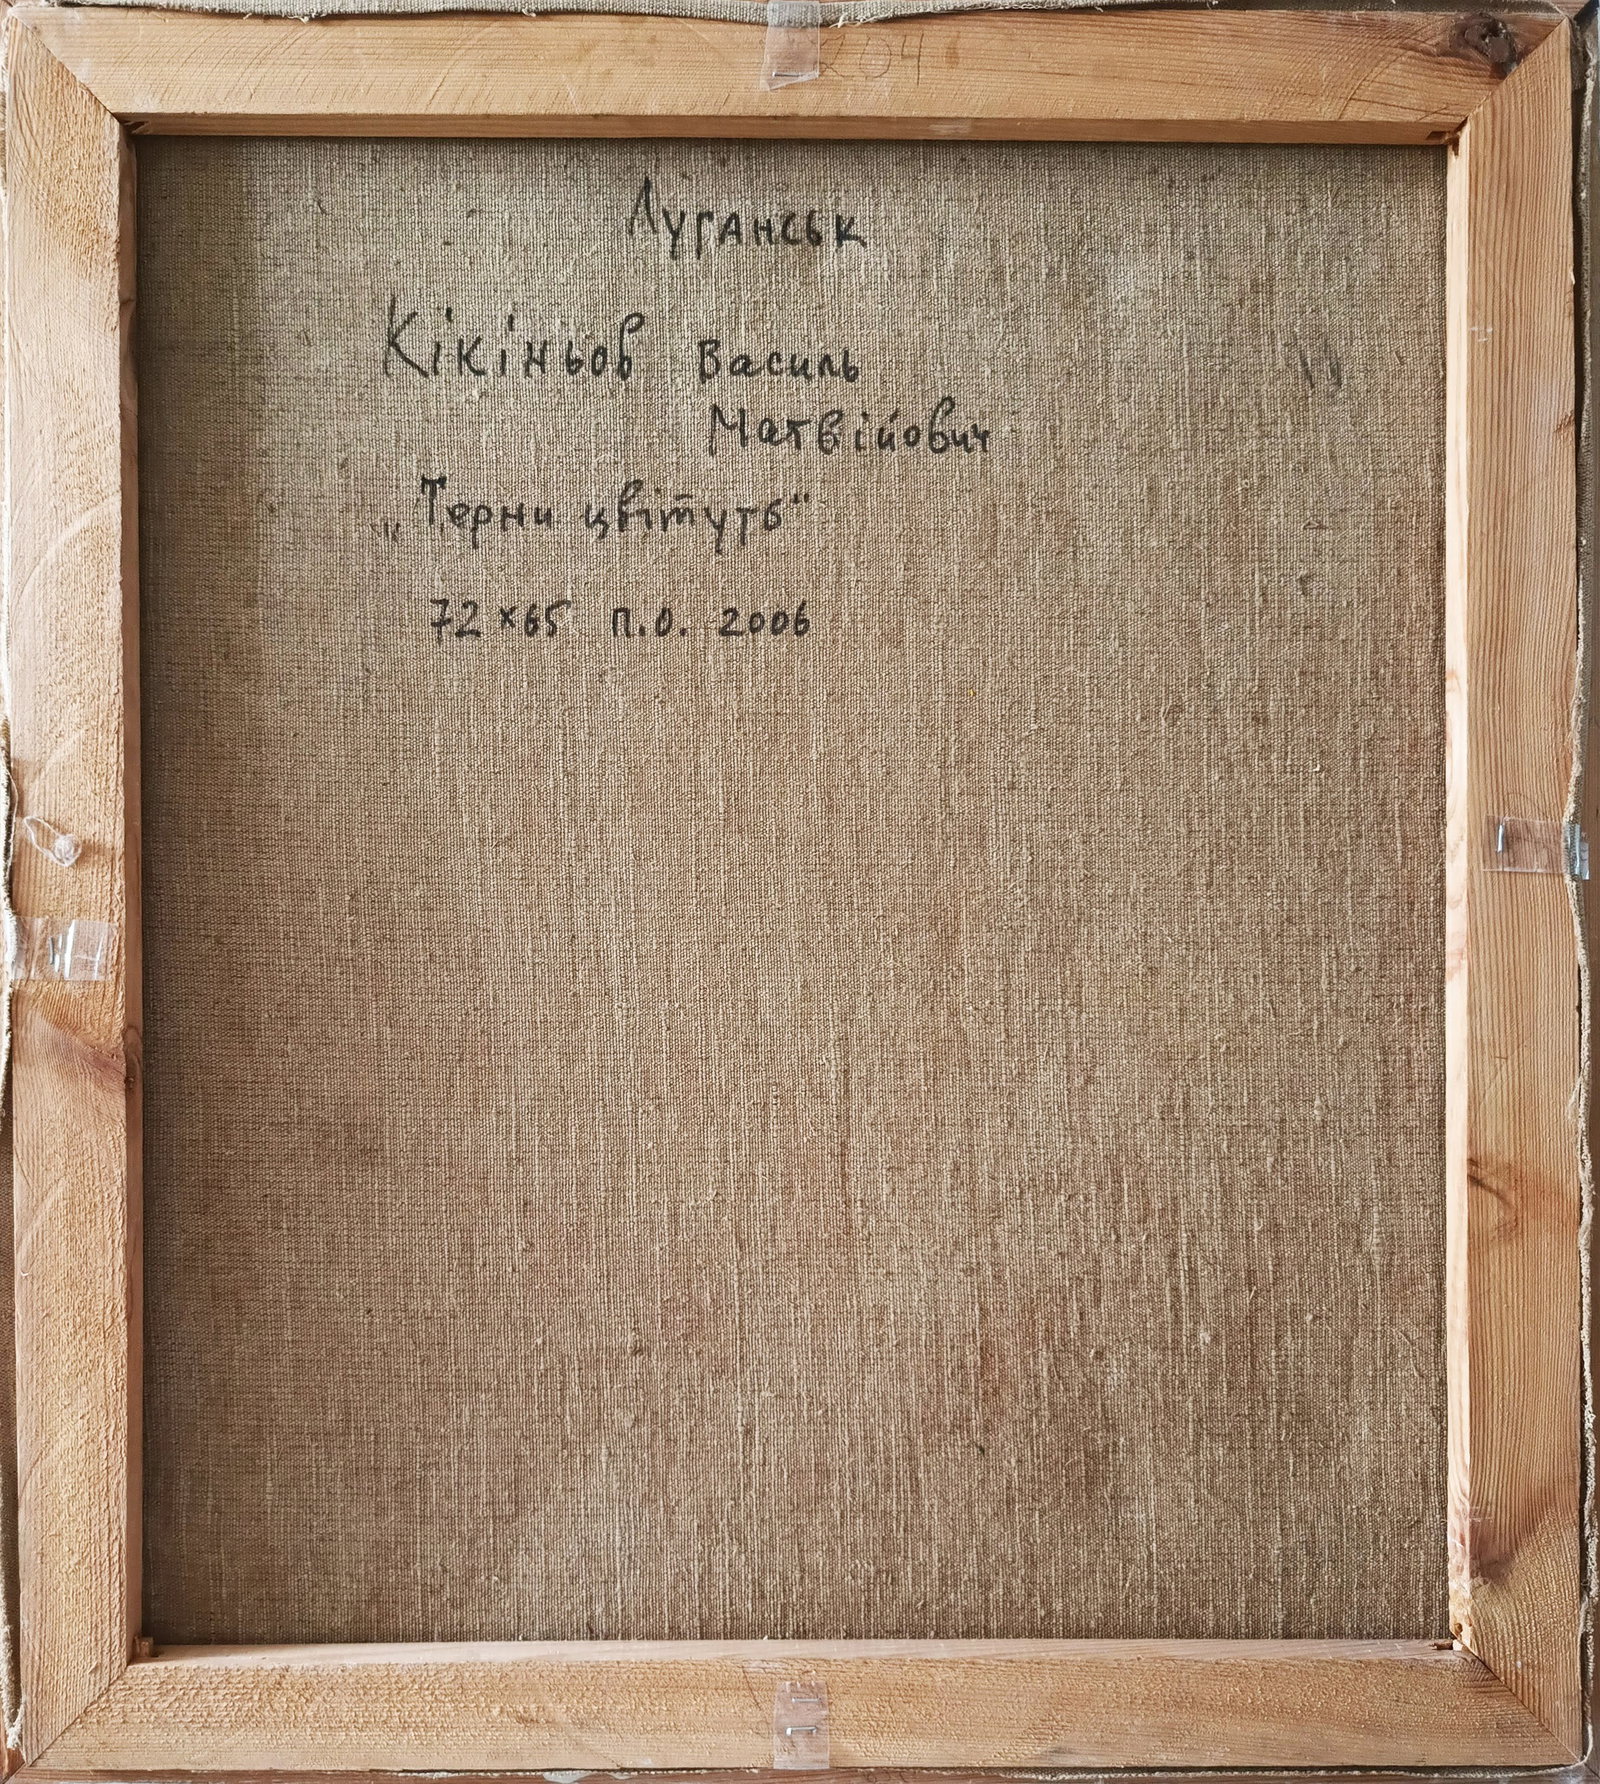 204
Луганськ
Кікіньов Василь
Матвійович
„Терни цвітуть“
72×65 п.о. 2006